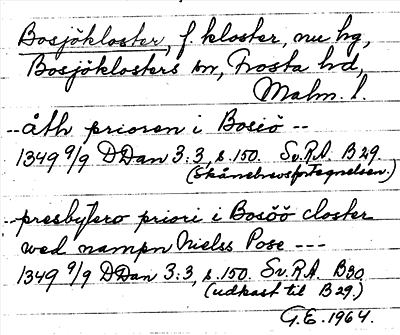 Bosjökloster, f kloster, nu hg,
Bosjöklosters sn, Frosta hd,
Malm. l.
-- åth prioren i Boseö --
1349 9/9 DDan 3:3, s.150. Sv.R.A. B 29.
(Skånebrevsfortegnelsen.)
-- presbytero priori i Bosöö closter
wed nampn Nielss Pose ---
1349 9/9 DDan 3:3, s.150. Sv.R.A. B30
(udkast til B 29.)
G.E. 1964.